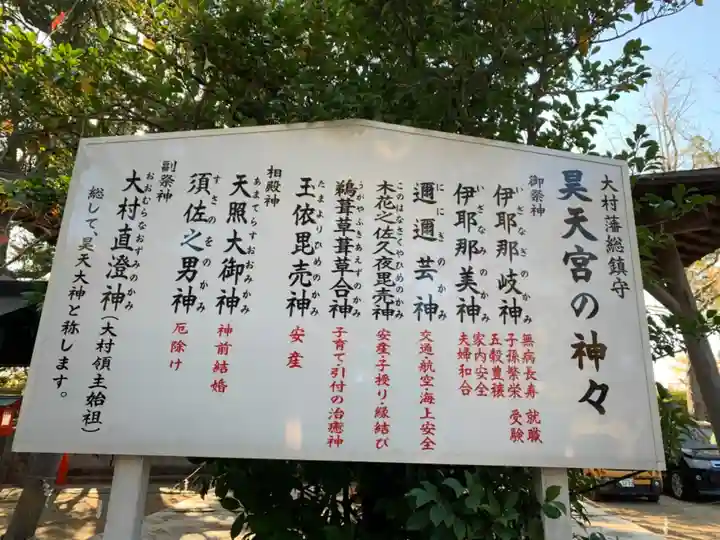 大村藩総鎮守
昊天宮の神々
御祭神
伊耶那岐神
いざなぎのかみ
無病長寿 就職
子孫繁栄 受験
五穀豊穣
伊耶那美神
いざなみのかみ
家内安全
夫婦和合
邇邇芸神
ににぎのかみ
交通・航空・海上安全
木花之佐久夜毘売神
このはなさくやひめのかみ
安産・子授り・縁結び
鵜葺草葺草合神
うがやふきあえずのかみ
子育て・引付の治癒神
玉依毘売神
たまよりひめのかみ
安産
相殿神
天照大御神
あまてらすおおみかみ
神前結婚
須佐之男神
すさのをのかみ
厄除け
副祭神
大村直澄神(大村領主始祖)
おおむらなおずみのかみ
総して、昊天大神と称します。